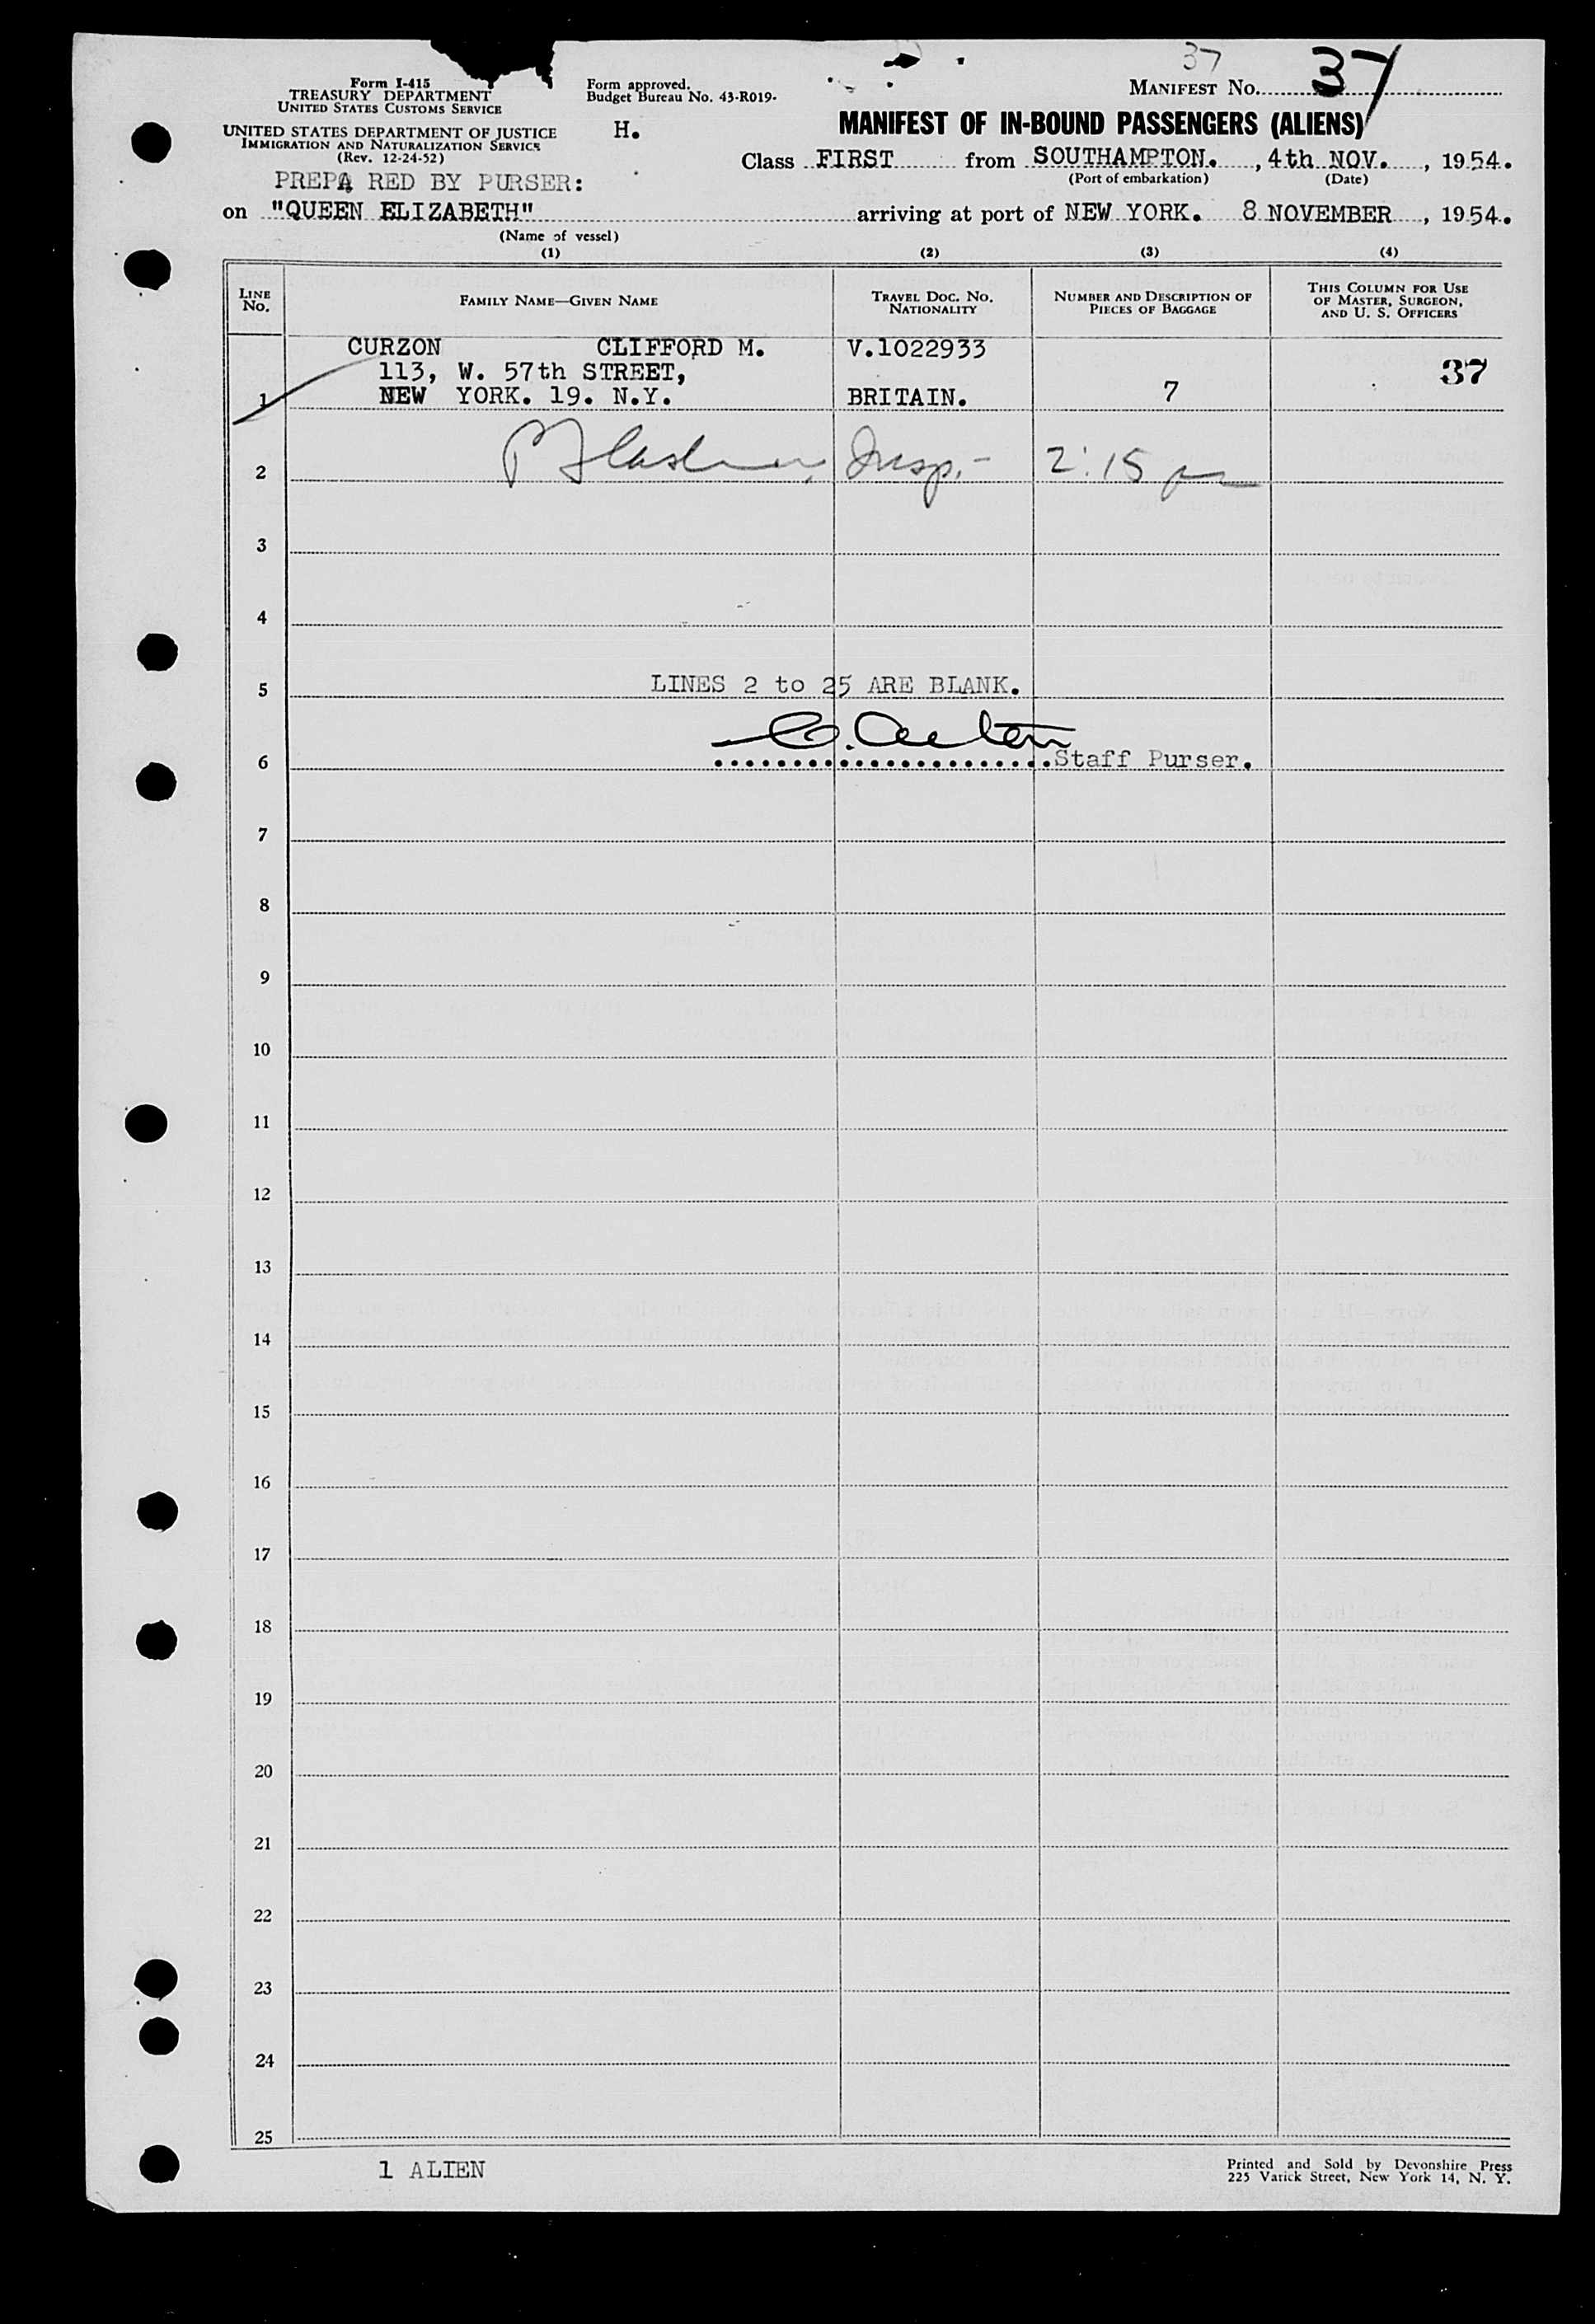 Form I-415
TREASURY DEPARTMENT
UNITED STATES CUSTOMS SERVICE
UNITED STATES DEPARTMENT OF JUSTICE
IMMIGRATION AND NATURALIZATION SERVICE
(Rev. 12-24-52)
Form approved.
Budget Bureau No. 43-R019-
H.
37
MANIFEST No. 37
MANIFEST OF IN-BOUND PASSENGERS (ALIENS)
Class FIRST from SOUTHAMPTON. , 4th NOV. , 1954.
(Port of embarkation) (Date)
PREPA RED BY PURSER:
on "QUEEN ELIZABETH" arriving at port of NEW YORK. 8 NOVEMBER , 1954.
(Name of vessel)
(1) (2) (3) (4)
LINE No. FAMILY NAME—GIVEN NAME TRAVEL DOC. NO. NATIONALITY NUMBER AND DESCRIPTION OF PIECES OF BAGGAGE THIS COLUMN FOR USE OF MASTER, SURGEON, AND U. S. OFFICERS
CURZON CLIFFORD M. V.1022933
113, W. 57th STREET, 37
1 NEW YORK. 19. N.Y. BRITAIN. 7
2 Insp.- 2:15 pm
3
4
5 LINES 2 to 25 ARE BLANK.
6 Staff Purser.
7
8
9
10
11
12
13
14
15
16
17
18
19
20
21
22
23
24
25
1 ALIEN
Printed and Sold by Devonshire Press
225 Varick Street, New York 14, N. Y.